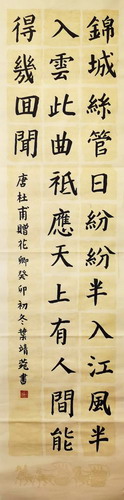 錦城絲管日紛紛半入江風半
入雲此曲祗應天上有人間能
得幾回聞
唐杜甫贈花卿癸卯初冬葉靖菀書